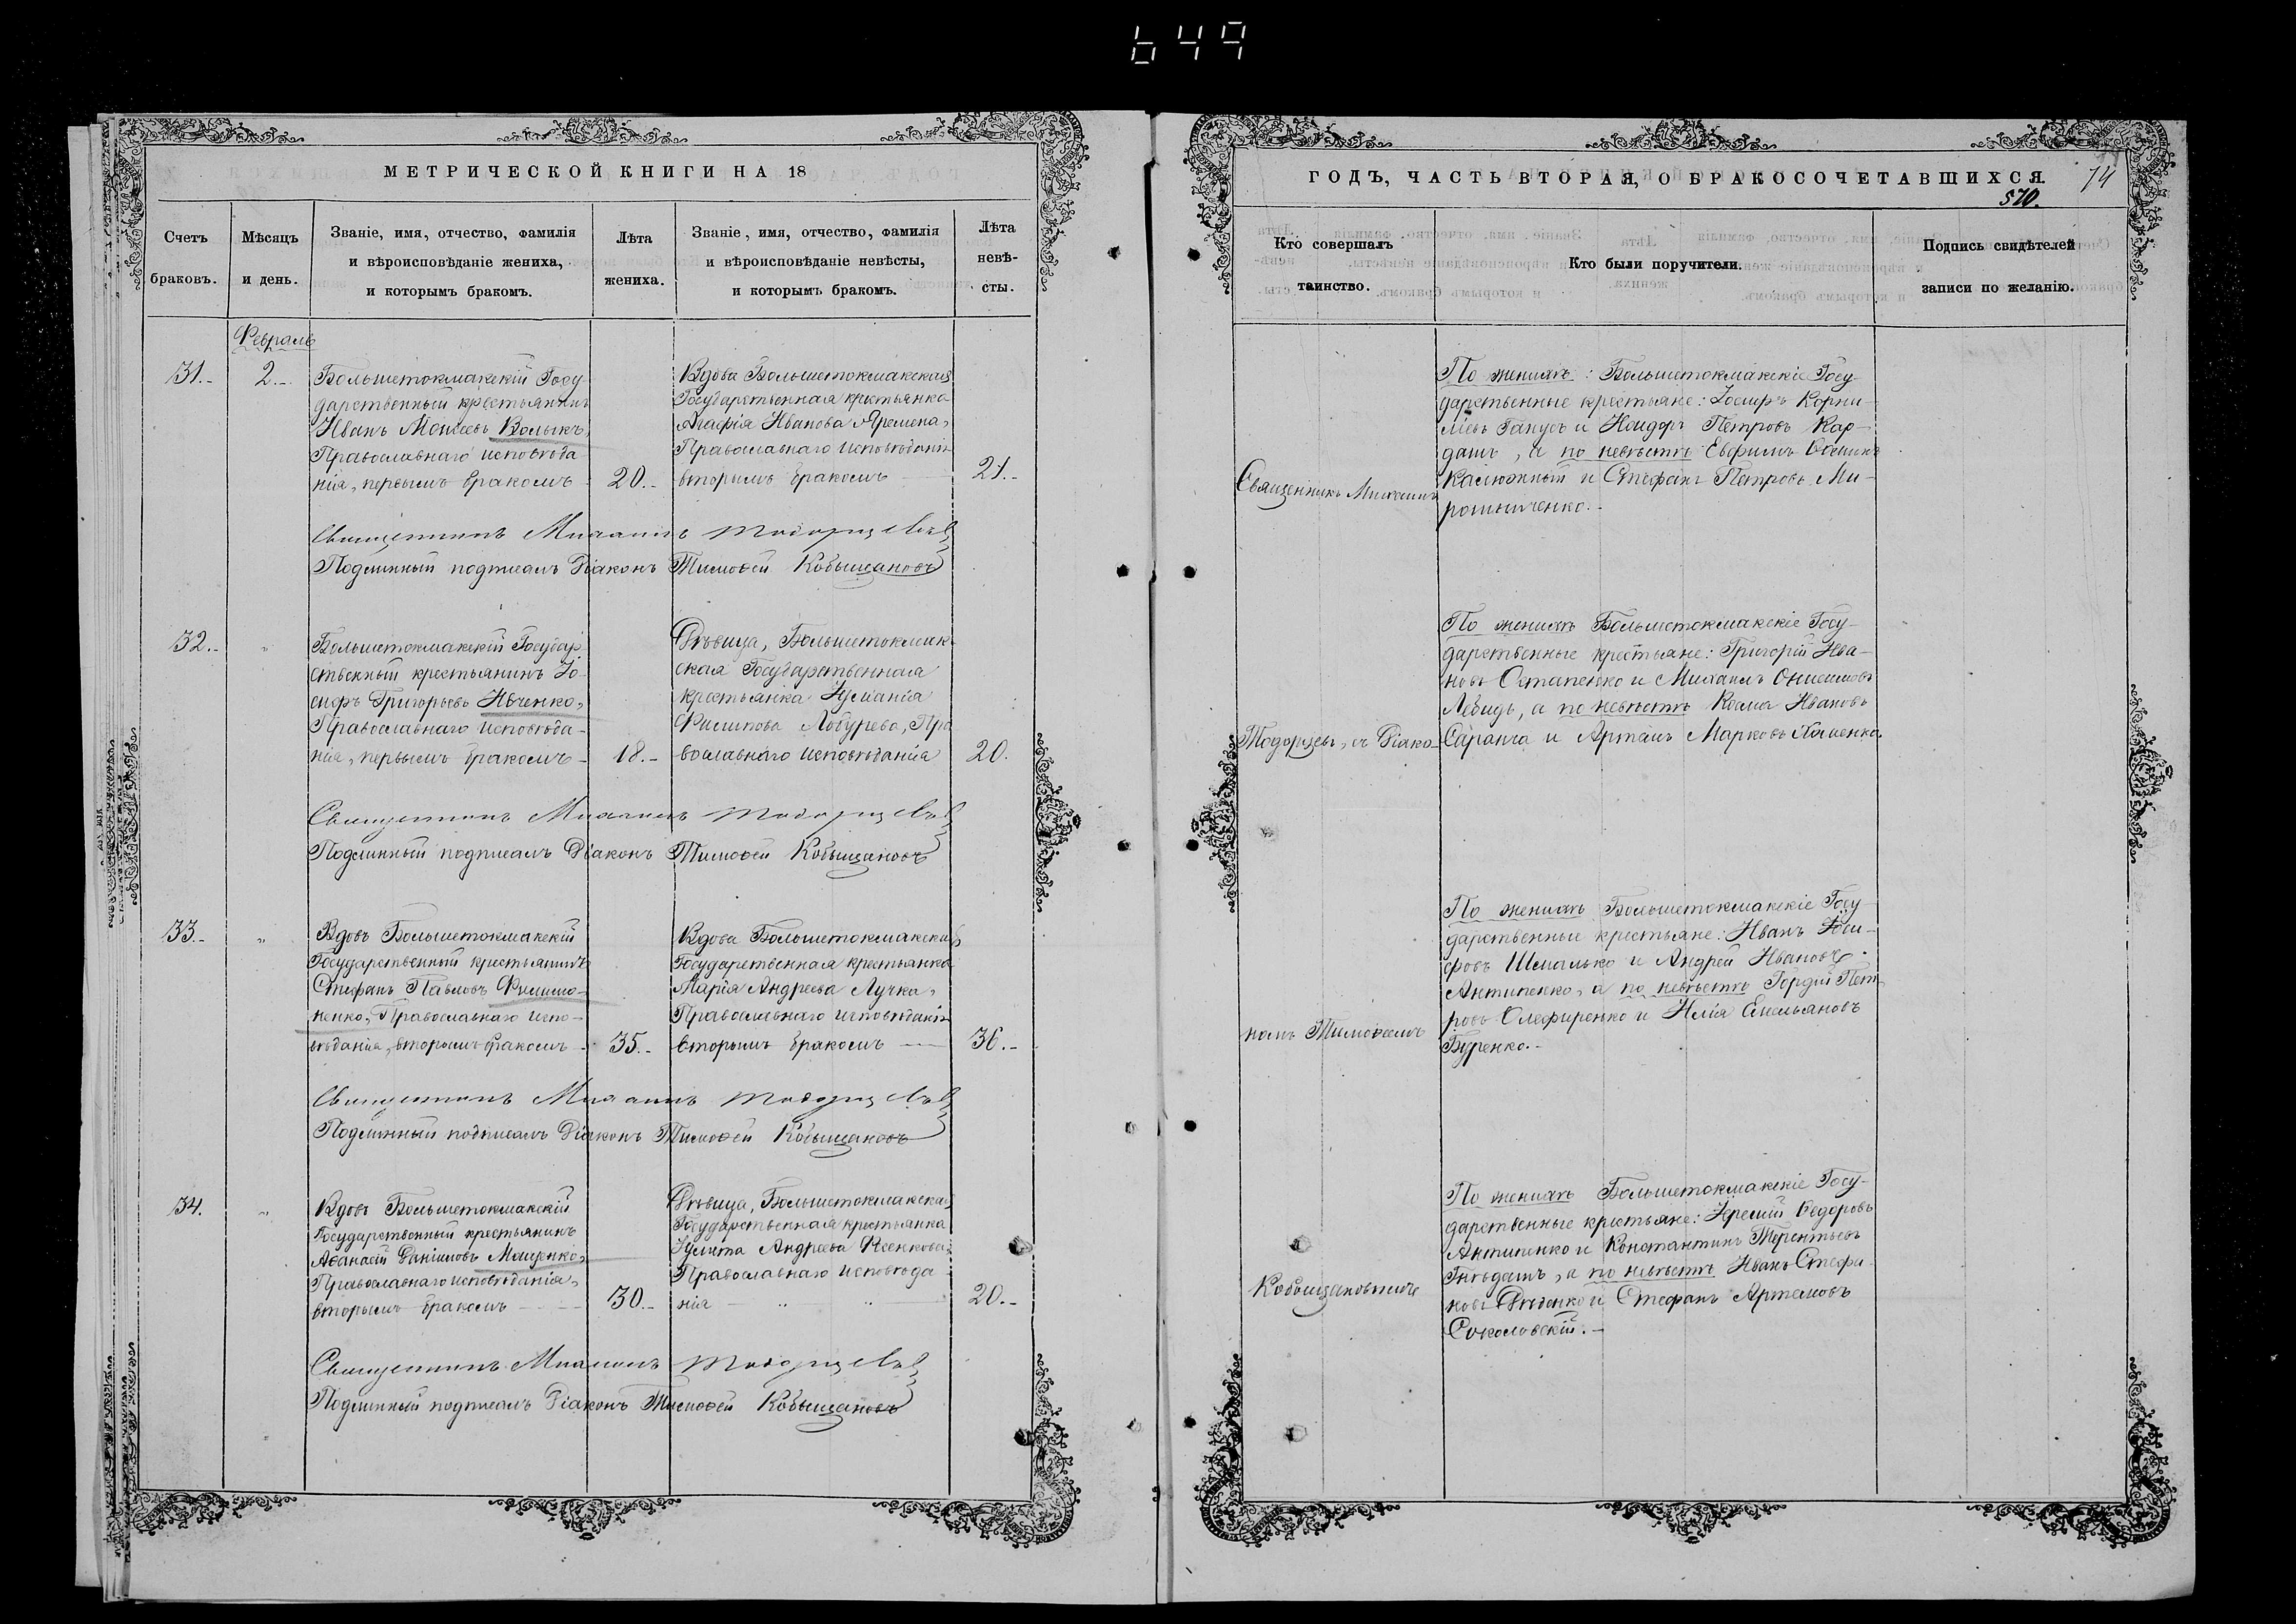 649
МЕТРИЧЕСКОЙ КНИГИ НА 18
Счетъ браковъ.
Мѣсяцъ и день.
Званіе, имя, отчество, фамилія
и вѣроисповѣданіе жениха,
и которымъ бракомъ.
Лѣта жениха.
Званіе, имя, отчество, фамилія
и вѣроисповѣданіе невѣсты,
и которымъ бракомъ.
Лѣта невѣ-
сты.
Февраль
31.-
2.-
Большетокмакскій Госу-
дарственный крестьянинъ
Иванъ Моисеевъ Волыкъ,
Православнаго исповѣда
нія, первымъ бракомъ
20.-
Вдова Большетокмакская
Государственная крестьянка
Агафія Иванова Яремена,
Православнаго исповѣданія
вторымъ бракомъ
21.-
Священникъ Михаилъ Тодорцевъ
Подлинный подписалъ Діаконъ Тимоѳей Кобыщановъ
32.-
Большетокмакскій Государ
ственный крестьянинъ Іо-
сифъ Григорьевъ Ивченко,
Православнаго исповѣда-
нія, первымъ бракомъ
18.-
Дѣвица, Большетокмак-
ская Государственная
крестьянка Іуліанія
Филипова Лобурева, Пра
вославнаго исповѣданія
20.
Священникъ Михаилъ Тодорцевъ
Подлинный подписалъ Діаконъ Тимоѳей Кобыщановъ
33.-
Вдовъ Большетокмакскій
Государственный крестьянинъ
Стефанъ Павловъ Филимо-
ненко, Православнаго испо-
вѣданія, вторымъ бракомъ
35.-
Вдова Большетокмакская
Государственная крестьянка
Марія Андреева Лучка,
Православнаго исповѣданія
вторымъ бракомъ
36.-
Священникъ Михаилъ Тодорцевъ
Подлинный подписалъ Діаконъ Тимоѳей Кобыщановъ
34.
Вдовъ Большетокмакскій
Государственный крестьянинъ
Аѳанасій Даніиловъ Мащенко,
Православнаго исповѣданія,
вторымъ бракомъ
30.-
Дѣвица, Большетокмакская
Государственная крестьянка
Іулита Андреева Ксенкова,
Православнаго исповѣда
нія
20.-
Священникъ Михаилъ Тодорцевъ
Подлинный подписалъ Діаконъ Тимоѳей Кобыщановъ
ГОДЪ, ЧАСТЬ ВТОРАЯ, О БРАКОСОЧЕТАВШИХСЯ.
74
570.
Кто совершалъ
таинство.
Кто были поручители.
Подпись свидѣтелей
записи по желанію.
Священникъ Михаилъ
Тодорцевъ, съ Діако-
номъ Тимоѳеемъ
Кобыщановымъ
По женихѣ: Большетокмакскіе Госу-
дарственные крестьяне: Іосифъ Корни-
ліевъ Ганусъ и Исидоръ Петровъ Кар-
дашъ, а по невѣстѣ Евфимъ
Калюжный и Стефанъ Петровъ Ми-
рошниченко.-
По женихѣ Большетокмакскіе Госу-
дарственные крестьяне: Григорій Ива-
новъ Остапенко и Михаилъ Онисимовъ
Лебидь, а по невѣстѣ Косма Ивановъ
Саранча и Артемъ Марковъ
По женихѣ Большетокмакскіе Госу-
дарственные крестьяне: Иванъ Іоси-
фовъ Шмалько и Андрей Ивановъ
Антипенко, а по невѣстѣ Гордій Пет
ровъ Олефиренко и Илія Емельяновъ
Буренко.-
По женихѣ Большетокмакскіе Госу-
дарственные крестьяне: Іеремій Ѳедоровъ
Антипенко и Константинъ Терентьевъ
Гнѣдашъ, а по невѣстѣ Иванъ Стефа-
новъ Дѣденко и Стефанъ Артемовъ
Соколовскій.-